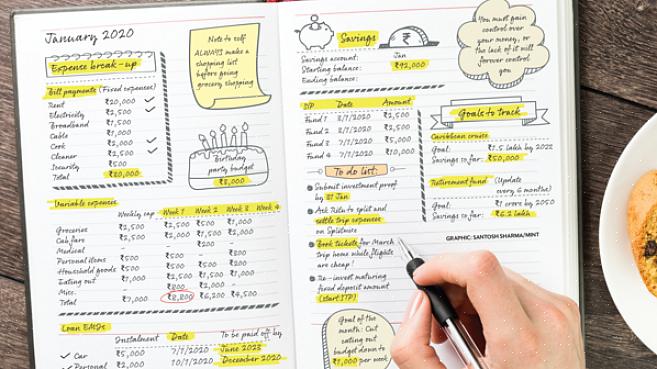 January 2020
Expense break-up
Bill payments (Fixed expenses)
Rent ₹20,000
Electricity ₹2,500
Broadband ₹1,500
Cable ₹1,000
Cook ₹2,000
Cleaner ₹2,500
Security ₹500
Total ₹30,000
Note to self
ALWAYS make a
shopping list
before going
grocery shopping
Birthday
party budget
₹8,000
Variable expenses
Weekly cap Week 1 Week 2 Week 3 Week 4
Groceries ₹2,500 ₹2,500 ₹1,500 ₹1,000
Cab fare ₹2,000 ₹2,000 ₹1,500 ₹2,000
Medical - - ₹200 -
Personal items ₹500 ₹500 - ₹200
Household goods ₹500 ₹500
Eating out ₹1,000 ₹2,500
Misc.
Total ₹7,000 ₹8,800 ₹6,200 ₹4,500
Loan EMIs
Instalment Date To be paid off by
Car ₹5,000 7/1/2020 June 2023
Personal ₹2,000 10/1/2020 December 2020
Savings
Jan
Savings account:
Starting balance: ₹92,000
Ending balance:
You must gain
control over
your money, or
the lack of it will
forever control
you
SIP Date Amount
Fund 1 3/1/2020 ₹2,500
Fund 2 ₹2,500
Fund 3 ₹5,000
Fund 4 7/1/2020 ₹10,000
Goals to track
Caribbean cruise
Goal: ₹1.5 lakh by 2022
Savings so far: ₹50,000
Retirement fund (Update
every 6 months)
Goal: ₹1 crore by 2050
Savings so far: ₹6.2 lakh
GRAPHIC: SANTOSH SHARMA/MINT
To do list:
Submit investment proof
by 31 Jan
Ask Ritu to split and
settle trip expenses
on Splitwise
Book tickets for March
trip home while flights
are cheap!
Re-invest maturing
fixed deposit amount
(start STP)
Goal of the
month: Cut
eating out
budget down to
₹1,000 per week